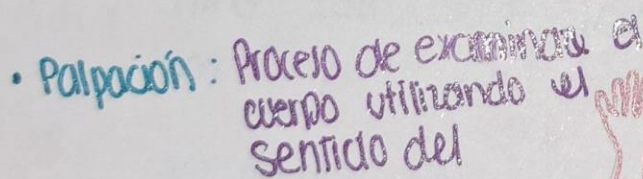 • Palpación: Proceso de examinar e
cuerpo utilizando el
sentido del